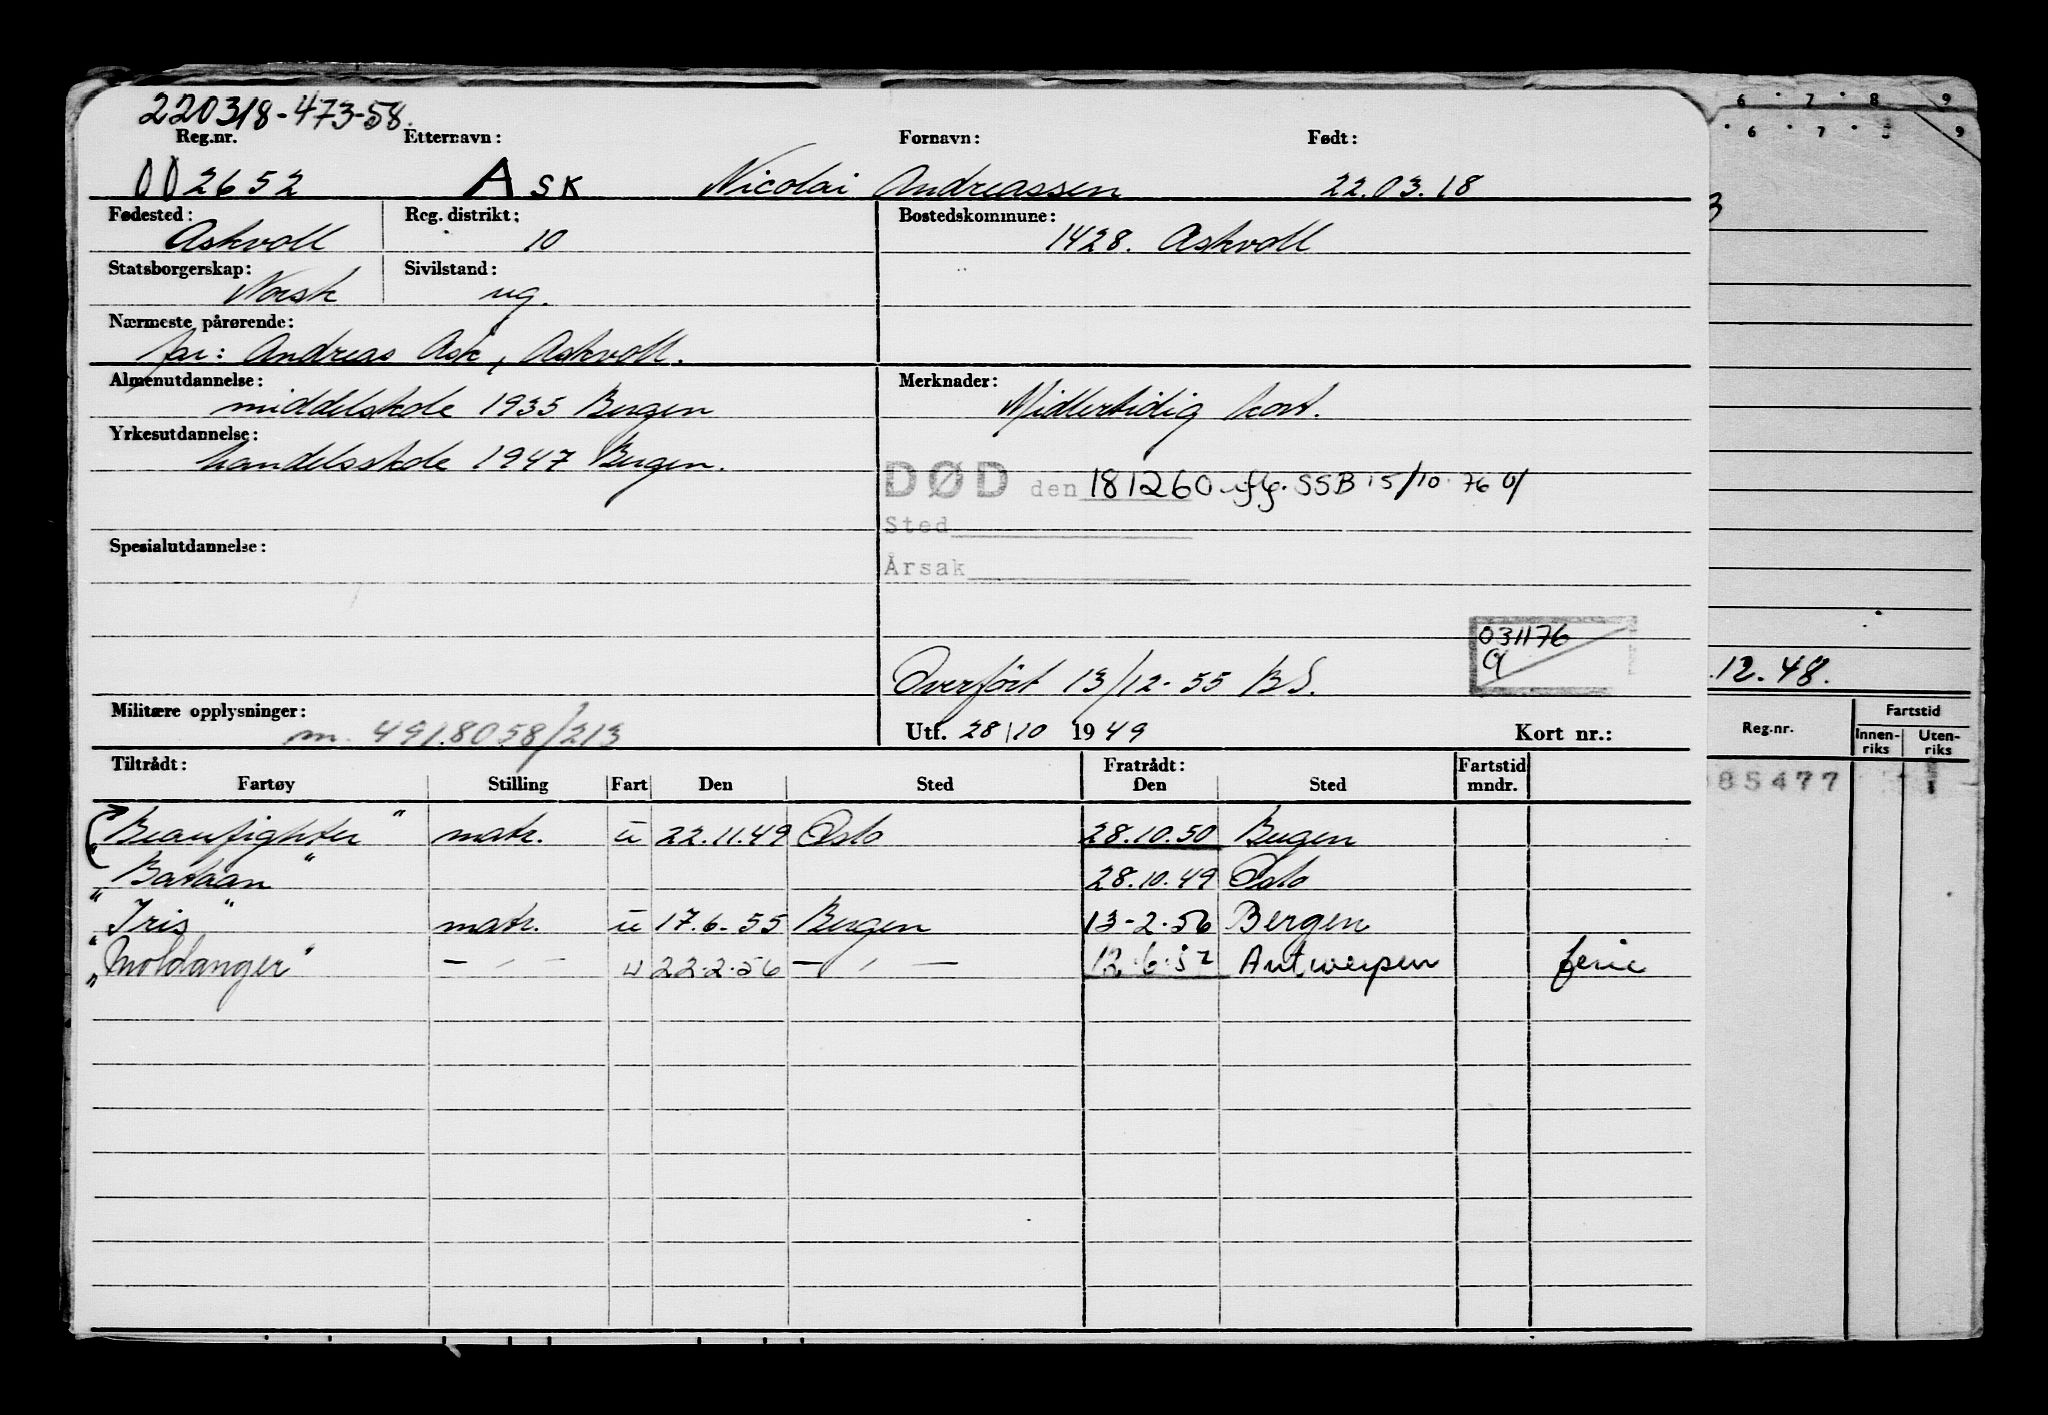 220318-473-58.
Reg.nr. Etternavn: Fornavn: Født:
002652 Ask Nicolai Andreassen 22.03.18
Fødested: Reg. distrikt: Bostedskommune:
Askvoll 10 1428. Askvoll
Statsborgerskap: Sivilstand:
Norsk ug.
Nærmeste pårørende:
far: Andreas Ask, Askvoll.
Almenutdannelse: Merknader:
middelskole 1935 Bergen Midlertidig kort.
Yrkesutdannelse:
handelsskole 1947 Bergen.
DØD den 181260 iflg. SSB 15/10.76
Sted
Spesialutdannelse:
Årsak
031176
Overført 13/12-55 BS.
Militære opplysninger: Utf. 28/10 1949 Kort nr.:
m. 491.8058/213
Tiltrådt: Fratrådt: Fartstid
Fartøy Stilling Fart Den Sted Den Sted mndr.
"Beaufighter" matr. u 22.11.49 Oslo 28.10.50 Bergen
"Bataan" 28.10.49 Oslo
"Iris" matr. u 17.6.55 Bergen 13-2-56 Bergen
"Moldanger" — " — u 22-2-56 — " — 12.6.57 Antwerpen ferie
6 7 8 9
6 7 8 9
3
.12.48.
Fartstid
Reg.nr. Innenriks Utenriks
85477